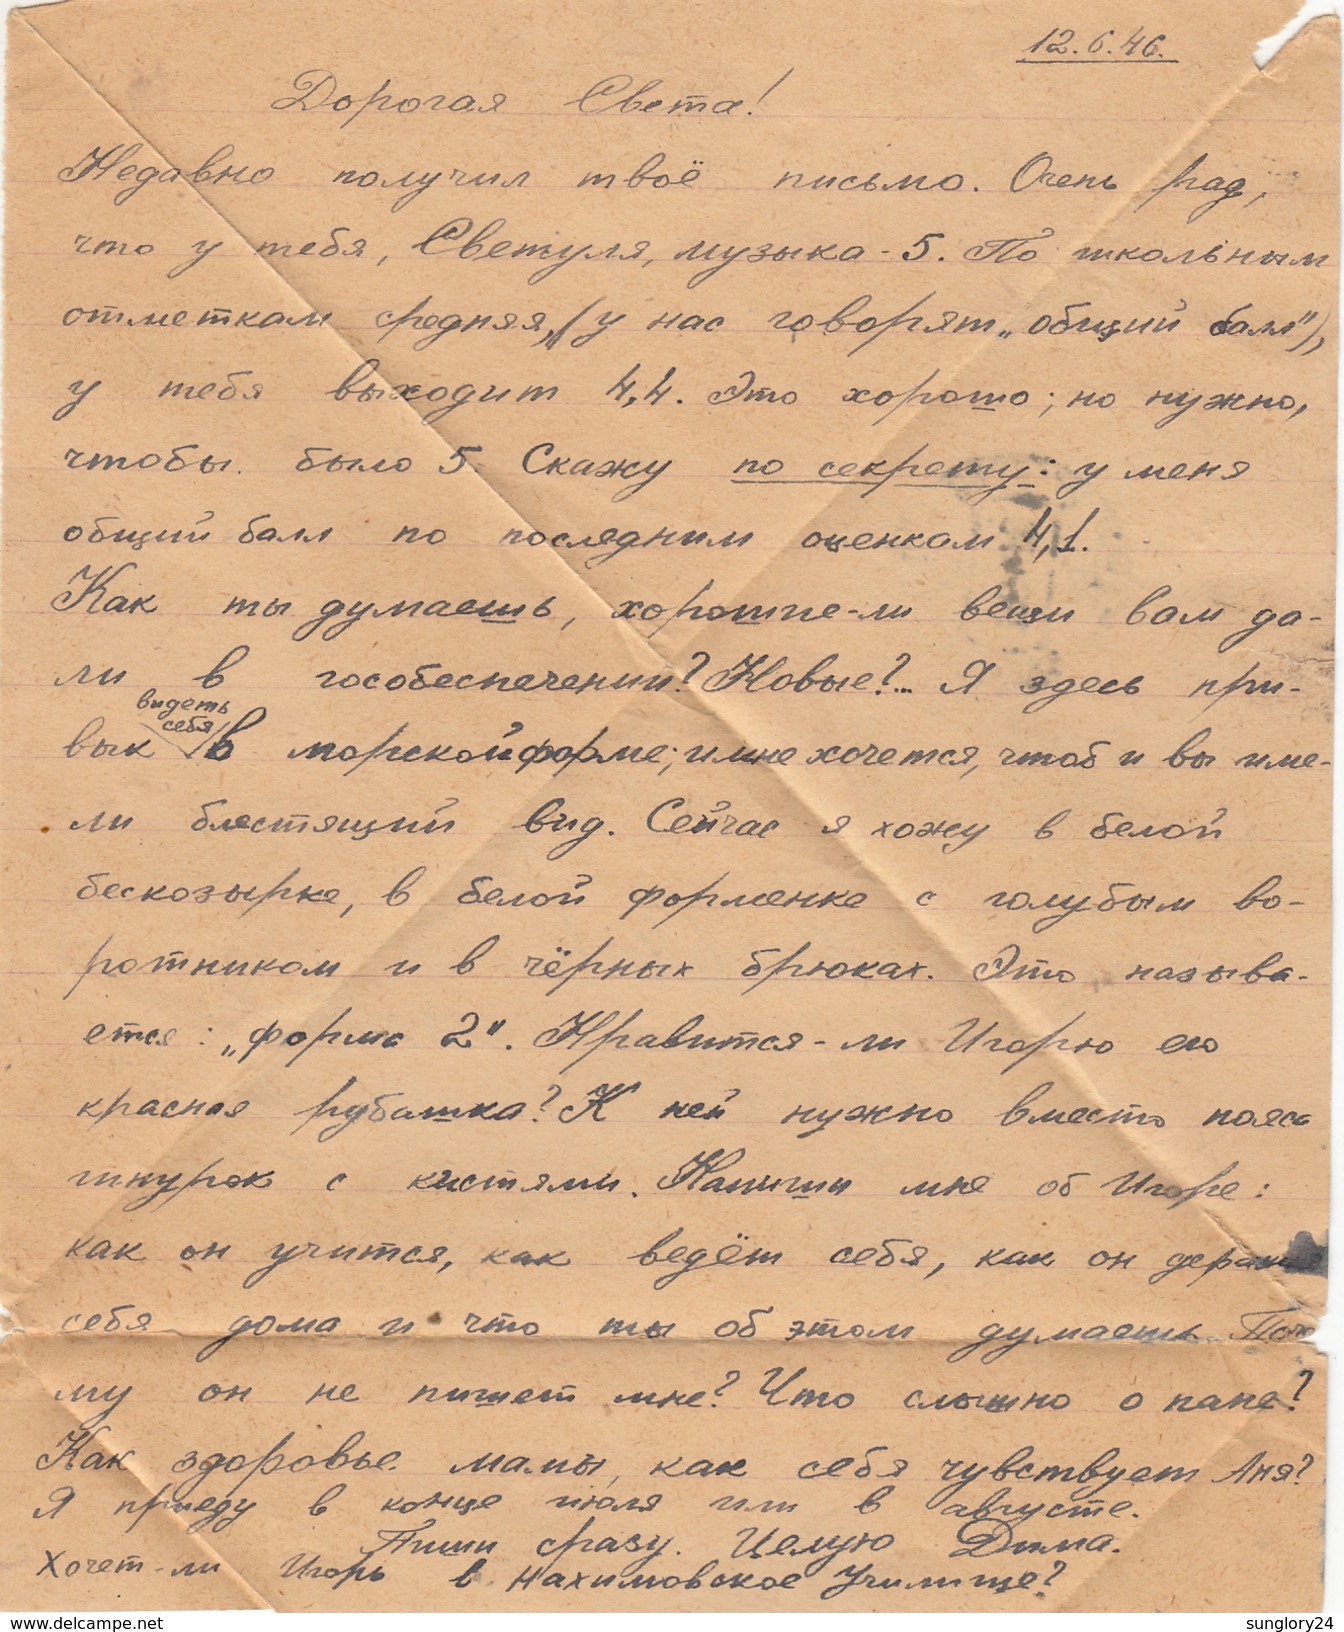 12.6.46.
Дорогая Света!
Недавно получил твоё письмо. Очень рад,
что у тебя, Светуля, музыка - 5. По школьным
отметкам средняя, (у нас говорят „общий балл"),
у тебя выходит 4,4. Это хорошо; но нужно,
чтобы было 5. Скажу по секрету: у меня
общий балл по последним оценкам 4,1.
Как ты думаешь, хорошие-ли вещи вам да-
ли в гособеспечении? Новые?... Я здесь при-
видеть
себя
вык в морской форме; и мне хочется, чтоб и вы име-
ли блестящий вид. Сейчас я хожу в белой
бескозырке, в белой форменке с голубым во-
ротником и в чёрных брюках. Это называ-
ется: „форма 2". Нравится-ли Игорю его
красная рубашка? К ней нужно вместо пояса
шнурок с кистями. Напиши мне об Игоре:
как он учится, как ведёт себя, как он держит
себя дома и что ты об этом думаешь. Поче
му он не пишет мне? Что слышно о папе?
Как здоровье мамы, как себя чувствует Аня?
Я приеду в конце июля или в августе.
Пиши сразу. Целую Дима.
Хочет-ли Игорь в Нахимовское Училище?
www.delcampe.net
sunglory24